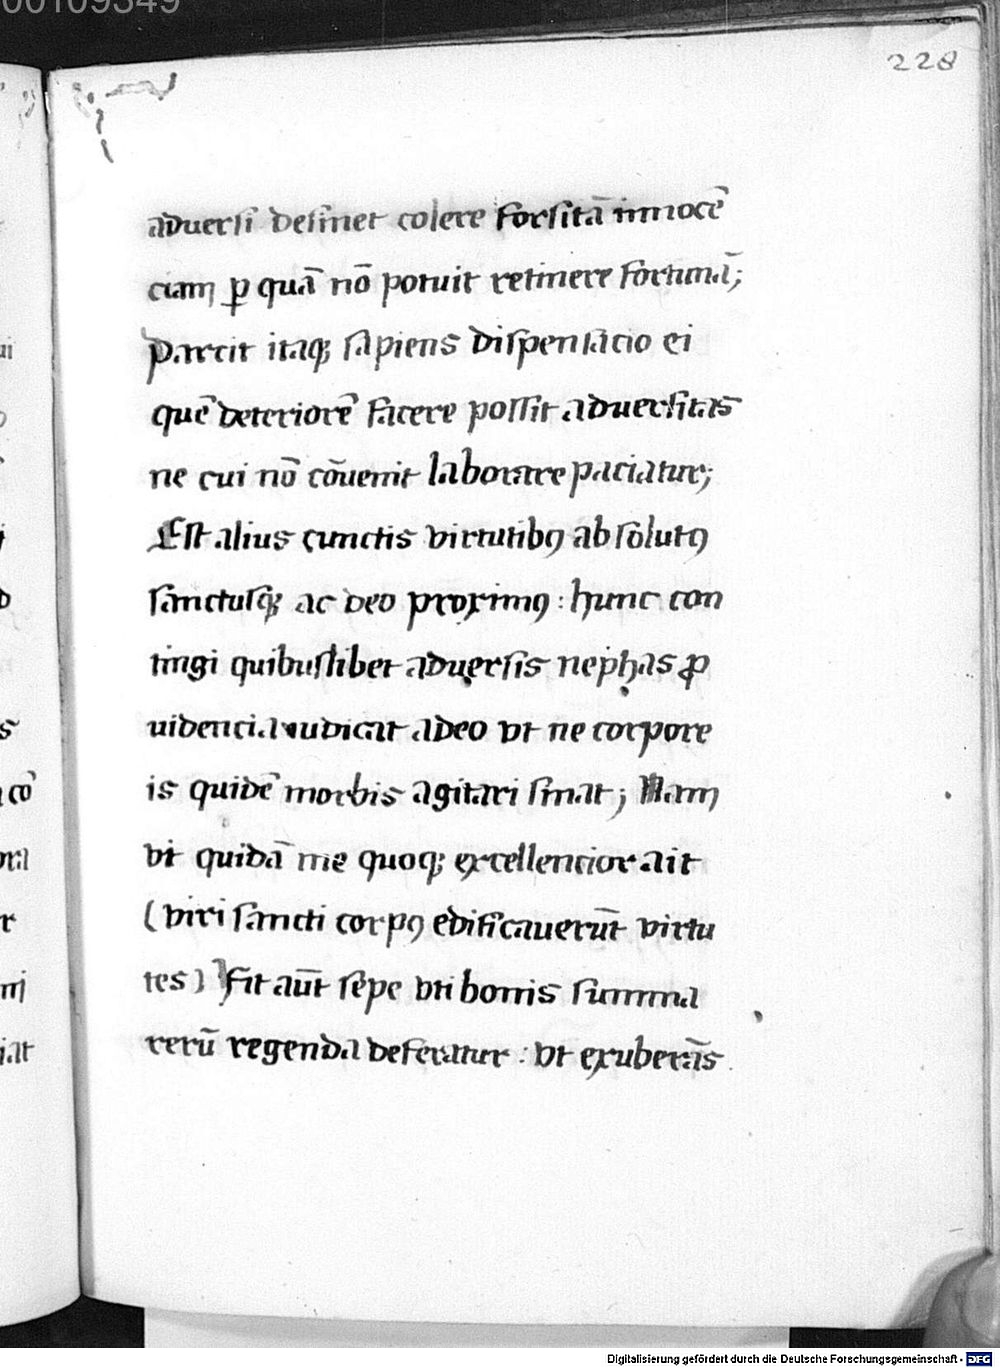 00109349
228
aduersi desinet colere forsitā innocē
ciam ꝑ quā nō potuit retinere fortunā;
Parcit itaqꝫ sapiens dispensacio ei
quē deteriorē facere possit aduersitas
ne cui nō cōuenit laborare paciatur;
Est alius cunctis virtutibꝰ absolutꝰ
sanctusqꝫ ac deo proximꝰ : hunc con
tingi quibuslibet aduersis nephas ꝓ
uidencia iudicat adeo vt ne corpore
is quidē morbis agitari sinat; Nam
vt quidā me quoqꝫ excellencior ait
(viri sancti corpꝰ edificauerūt virtu
tes) Fit aūt sepe vti bonis summa
rerū regenda deferatur : vt exuberās
ui
cō
Digitalisierung gefördert durch die Deutsche Forschungsgemeinschaft - DFG